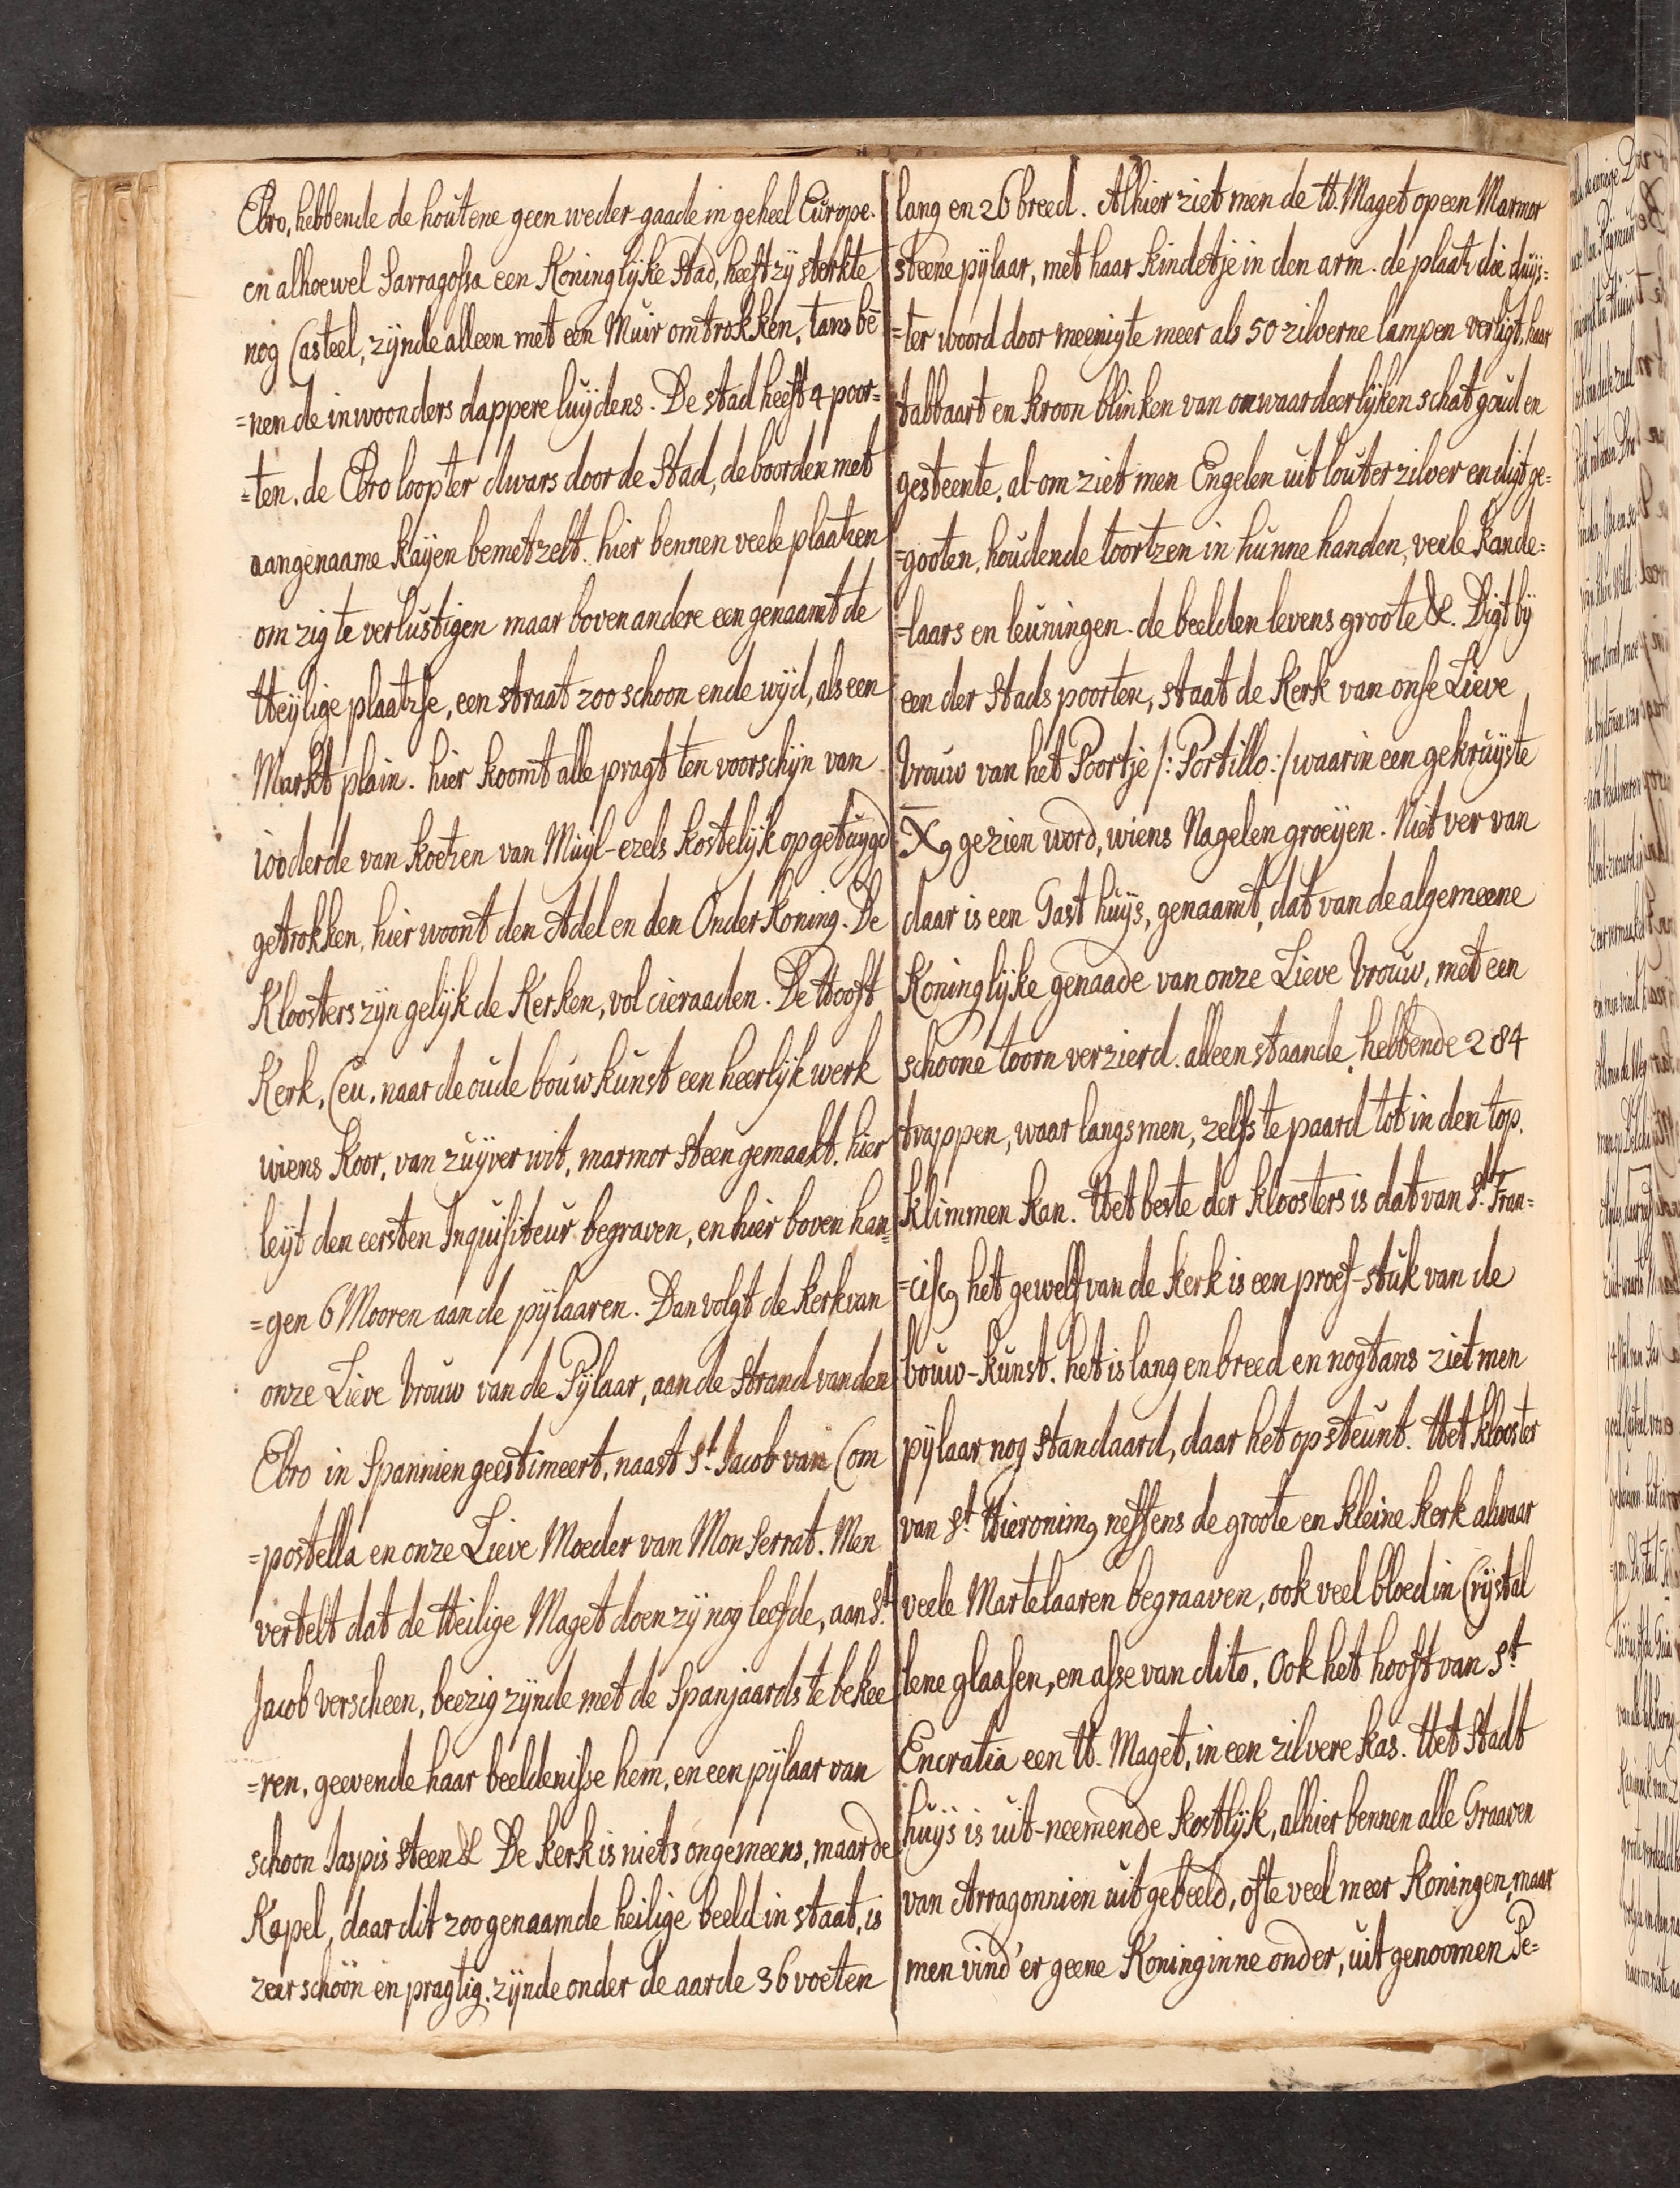 Ebro, hebbende de houtene geen weder-gaade in geheel Europe.
en alhoewel Sarragossa een Koninglijke Stad, heeft zij sterkte
nog Casteel, zijnde alleen met een Muir omtrokken, tans bē
=nen de inwoonders dappere luijdens. De stad heeft 4 poor=
=ten. de Ebro loopter dwars door de Stad, de boorden met
aangenaame Kaÿen bemetzelt. hier bennen veele plaatzen
om zig te verlustigen maar boven andere een genaamt de
Heÿlige plaatzse, een straat zoo schoon ende wijd, als een
Markt plain. hier koomt alle pragt ten voorschijn van
100derde van koetzen van Muÿl-ezels kostelijk opgetuygd
getrokken, hier woont den Adel en den Onder Koning. De
Kloosters zijn gelijk de Kerken, vol cieraaden. De Hooft
Kerk, Ceu, naar de oude bouwkunst een heerlijk werk
wiens Koor, van zuijver wit, marmor steen gemaakt. hier
leijt den eersten Inquisiteur begraven, en hier boven han=
=gen 6 Mooren aan de pijlaaren. Dan volgt de kerk van
onze Lieve Vrouw van de Pijlaar, aan de Strand van den
Ebro in Spannien geestimeert, naast St. Jacob van Com
=postella en onze Lieve Moeder van Mon Serrat. Men
vertelt dat de Heilige Maget doen zij nog leefde, aan St.
Jacob verscheen, beezig zijnde met de Spanjaards te bekee
=ren, geevende haar beeldenisse hem, en een pijlaar van
schoon Jaspis steen &. De kerk is niets ongemeens, maar de
Kapel, daar dit zoogenaamde heilige beeld in staat, is
zeer schoon en pragtig. zijnde onder de aarde 36 voeten
lang en 26 breed. Alhier ziet men de H. Maget op een Marmor
steene pijlaar, met haar kindetje in den arm. de plaatz die duijs=
=ter woord door meenigte meer als 50 zilverne lampen verligt, haar
tabbaart en kroon blinken van onwaardeerlijken schat goud en
gesteente, al-om ziet men Engelen uit louter zilver en digt ge=
=gooten, houdende toortzen in hunne handen, veele Kande=
=laars en leuningen. de beelden levens groote &. Digt bij
een der Stads poorten, staat de Kerk van onse Lieve
Vrouw van het Poortje /: Portillo :/ waarin een gekruijste
X9 gezien word, wiens Nagelen groeijen. Niet ver van
daar is een Gast huijs, genaamt, dat van de algemeene
Koninglijke genaade van onze Lieve Vrouw, met een
schoone toorn verzierd. alleen staande, hebbende 284
trappen, waar langs men, zelfs te paard tot in den top,
klimmen kan. Het beste der kloosters is dat van St. Fran=
=cisc9 het gewelf van de kerk is een proef-stuk van de
bouw-kunst. het is lang en breed en nogtans ziet men
pijlaar nog standaard, daar het op steunt. Het klooster
van St. Hieronim9 neffens de groote en kleine kerk alwaar
veele Martelaaren begraaven, ook veel bloed in Crijstal
lene glaasen, en asse van dito, Ook het hooft van St.
Encratia een H. Maget, in een zilvere kas. Het Stadt
huijs is uit-neemende kostlijk, alhier bennen alle Graaven
van Arragonnien uitgebeeld, ofte veel meer Koningen, maar
men vind'er geene Koninginne onder, uitgenoomen Pe=